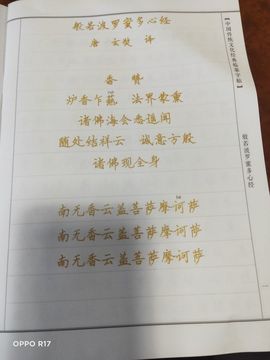 般若波罗蜜多心经
唐 玄奘 译
香 赞
炉香乍爇 法界蒙熏
诸佛海会悉遥闻
随处结祥云 诚意方殷
诸佛现全身
南无香云盖菩萨摩诃萨
南无香云盖菩萨摩诃萨
南无香云盖菩萨摩诃萨
【中国传统文化经典临摹字帖】
般若波罗蜜多心经
OPPO R17